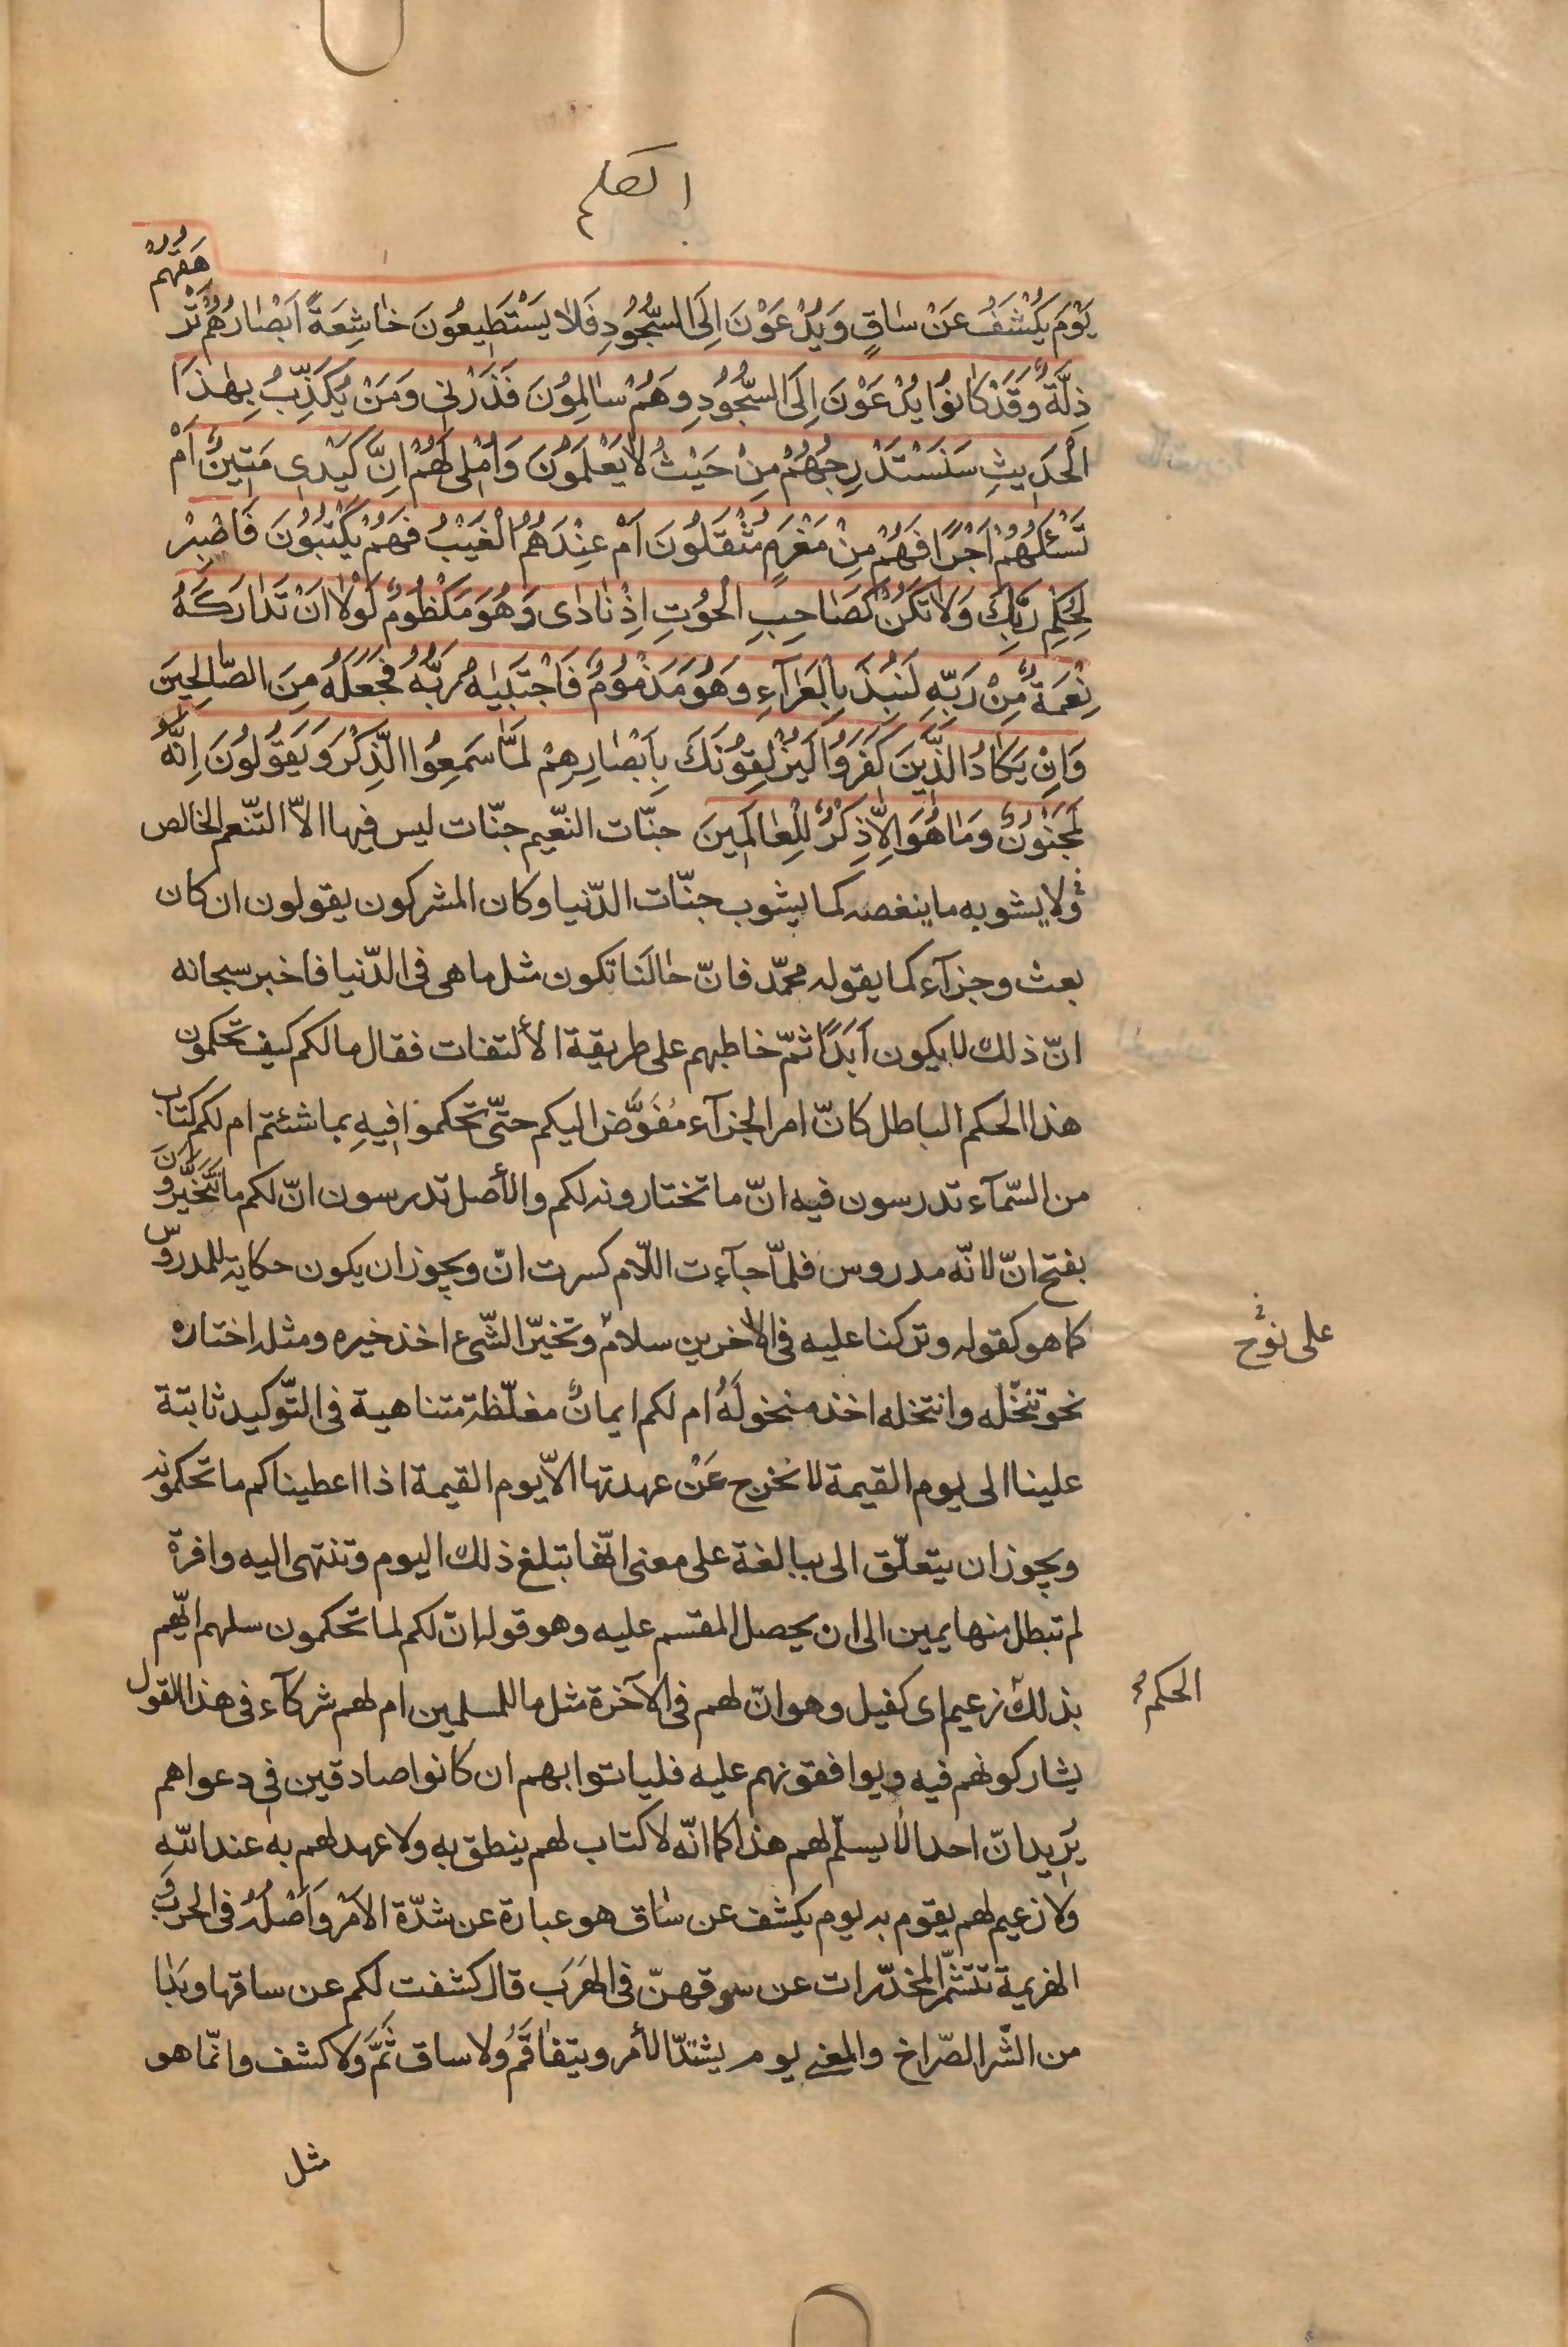 القلم
يَوْمَ يُكْشَفُ عَنْ سٰاقٍ وَيُدْعَوْنَ اِلَى السُّجُودِ فَلاٰ يَسْتَطِيعُونَ خٰاشِعَةً اَبْصٰارُهُمْ تَرْهَقُهُمْ
ذِلَّةٌ وَقَدْ كٰانُوا يُدْعَوْنَ اِلَى السُّجُودِ وَهُمْ سٰالِمُونَ فَذَرْنِي وَمَنْ يُكَذِّبُ بِهٰذَا
الْحَدِيثِ سَنَسْتَدْرِجُهُمْ مِنْ حَيْثُ لاٰ يَعْلَمُونَ وَاُمْلِي لَهُمْ اِنَّ كَيْدِي مَتِينٌ اَمْ
تَسْئَلُهُمْ اَجْرًا فَهُمْ مِنْ مَغْرَمٍ مُثْقَلُونَ اَمْ عِنْدَهُمُ الْغَيْبُ فَهُمْ يَكْتُبُونَ فَاصْبِرْ
لِحُكْمِ رَبِّكَ وَلاٰ تَكُنْ كَصٰاحِبِ الْحُوتِ اِذْ نٰادٰى وَهُوَ مَكْظُومٌ لَوْلاٰ اَنْ تَدٰارَكَهُ
نِعْمَةٌ مِنْ رَبِّهِ لَنُبِذَ بِالْعَرٰآءِ وَهُوَ مَذْمُومٌ فَاجْتَبٰيهُ رَبُّهُ فَجَعَلَهُ مِنَ الصّٰالِحِينَ
وَاِنْ يَكٰادُ الَّذِينَ كَفَرُوا لَيُزْلِقُونَكَ بِاَبْصٰارِهِمْ لَمّٰا سَمِعُوا الذِّكْرَ وَيَقُولُونَ اِنَّهُ
لَمَجْنُونٌ وَمٰا هُوَ اِلاّٰ ذِكْرٌ لِلْعٰالَمِينَ جنّات النعّيم جنّات ليس فيها الاّ التّنعم الخالص
ولا يشوبه ما ينغصه كما يشوب جنّات الدّنيا وكان المشركون يقولون ان كان
بعث وجزآء كما يقوله محمّد فانّ حٰالَنا تكون مثل ما هى فى الدّنيا فاخبر سبحانه
انّ ذلك لا يكون اَبَدًا ثمّ خاطبهم على طريقة الألتفات فقال ما لكم كيف تحكمون
هذا الحكم الباطل كانّ امر الجزآء مُفَوَّض اليكم حتّى تحكموا فيهِ بما شئتم ام لكم كتاب
من السّمآء تدرسون فيه انّ ما تختارونه لكم والأصل تدرسون انّ لكم ما تَخَيَّرُونَ
بفتح انّ لانّه مدروس فلمّا جآءت اللّام كسرت انّ ويجوز ان يكون حكاية للمدروس
كما هو كقوله وتركنا عليه فى الاٰخرين سلامٌ وتخيّر الشّىء اخذ خيره ومثله اختاره
على نوح
نحو تنخّله وانتخله اخذ منخولَهُ ام لكم ايمانٌ مغلّظة متناهية فى التّوكيد ثابتة
علينا الى يوم القيمة لا نخرج عَنْ عهدتها الاّ يوم القيمة اذا اعطيناكم ما تحكمونه
ويجوز ان يتعلّق الى ببالغة على معنى انّها تبلغ ذلك اليوم وتنتهى اليه وافرة
لم تبطل منها يمين الى ان يحصل المقسم عليه وهو قوله انّ لكم لما تحكمون سلهم ايّهم
بذلك زعيم اى كفيل وهو انّ لهم فى الآخرة مثل ما للمسلمين ام لهم شركآء فى هذا القول
الحكم
يشاركونهم فيه ويوافقونهم عليه فلياتوا بهم ان كانوا صادقين فى دعواهم
يُريد انّ احدا لا يسلّم لهم هذا كما انّه لا كتاب لهم ينطق به ولا عهد لهم به عند اللّه
ولا زعيم لهم يقوم به يوم يكشف عن سٰاق هو عبارة عن شدّة الاَمْر وَاَصْلُهُ فى الحرب و
الهزيمة تتشمّر المخدّرات عن سوقهنّ فى الهَرَب قال كشفت لكم عن ساقها وبَدٰا
من الشّر الصّراخ والمعنى يوم يشتدّ الأمر ويتفٰاقَمُ ولا ساق ثَمَّ وَلا كشف وانّما هو
مثل